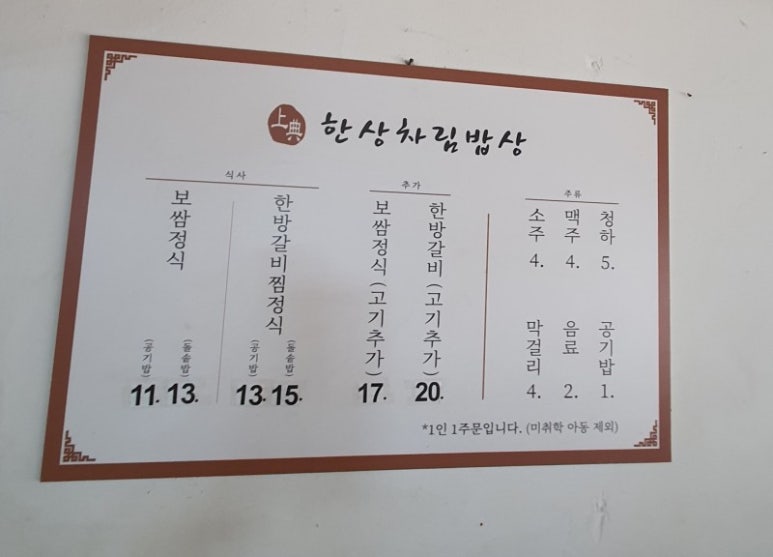 上典 한상차림밥상
식사
보쌈정식
(공기밥) 11.
(돌솥밥) 13.
한방갈비찜정식
(공기밥) 13.
(돌솥밥) 15.
추가
보쌈정식(고기추가) 17.
한방갈비(고기추가) 20.
주류
소주 4.
맥주 4.
청하 5.
막걸리 4.
음료 2.
공기밥 1.
*1인 1주문입니다. (미취학 아동 제외)